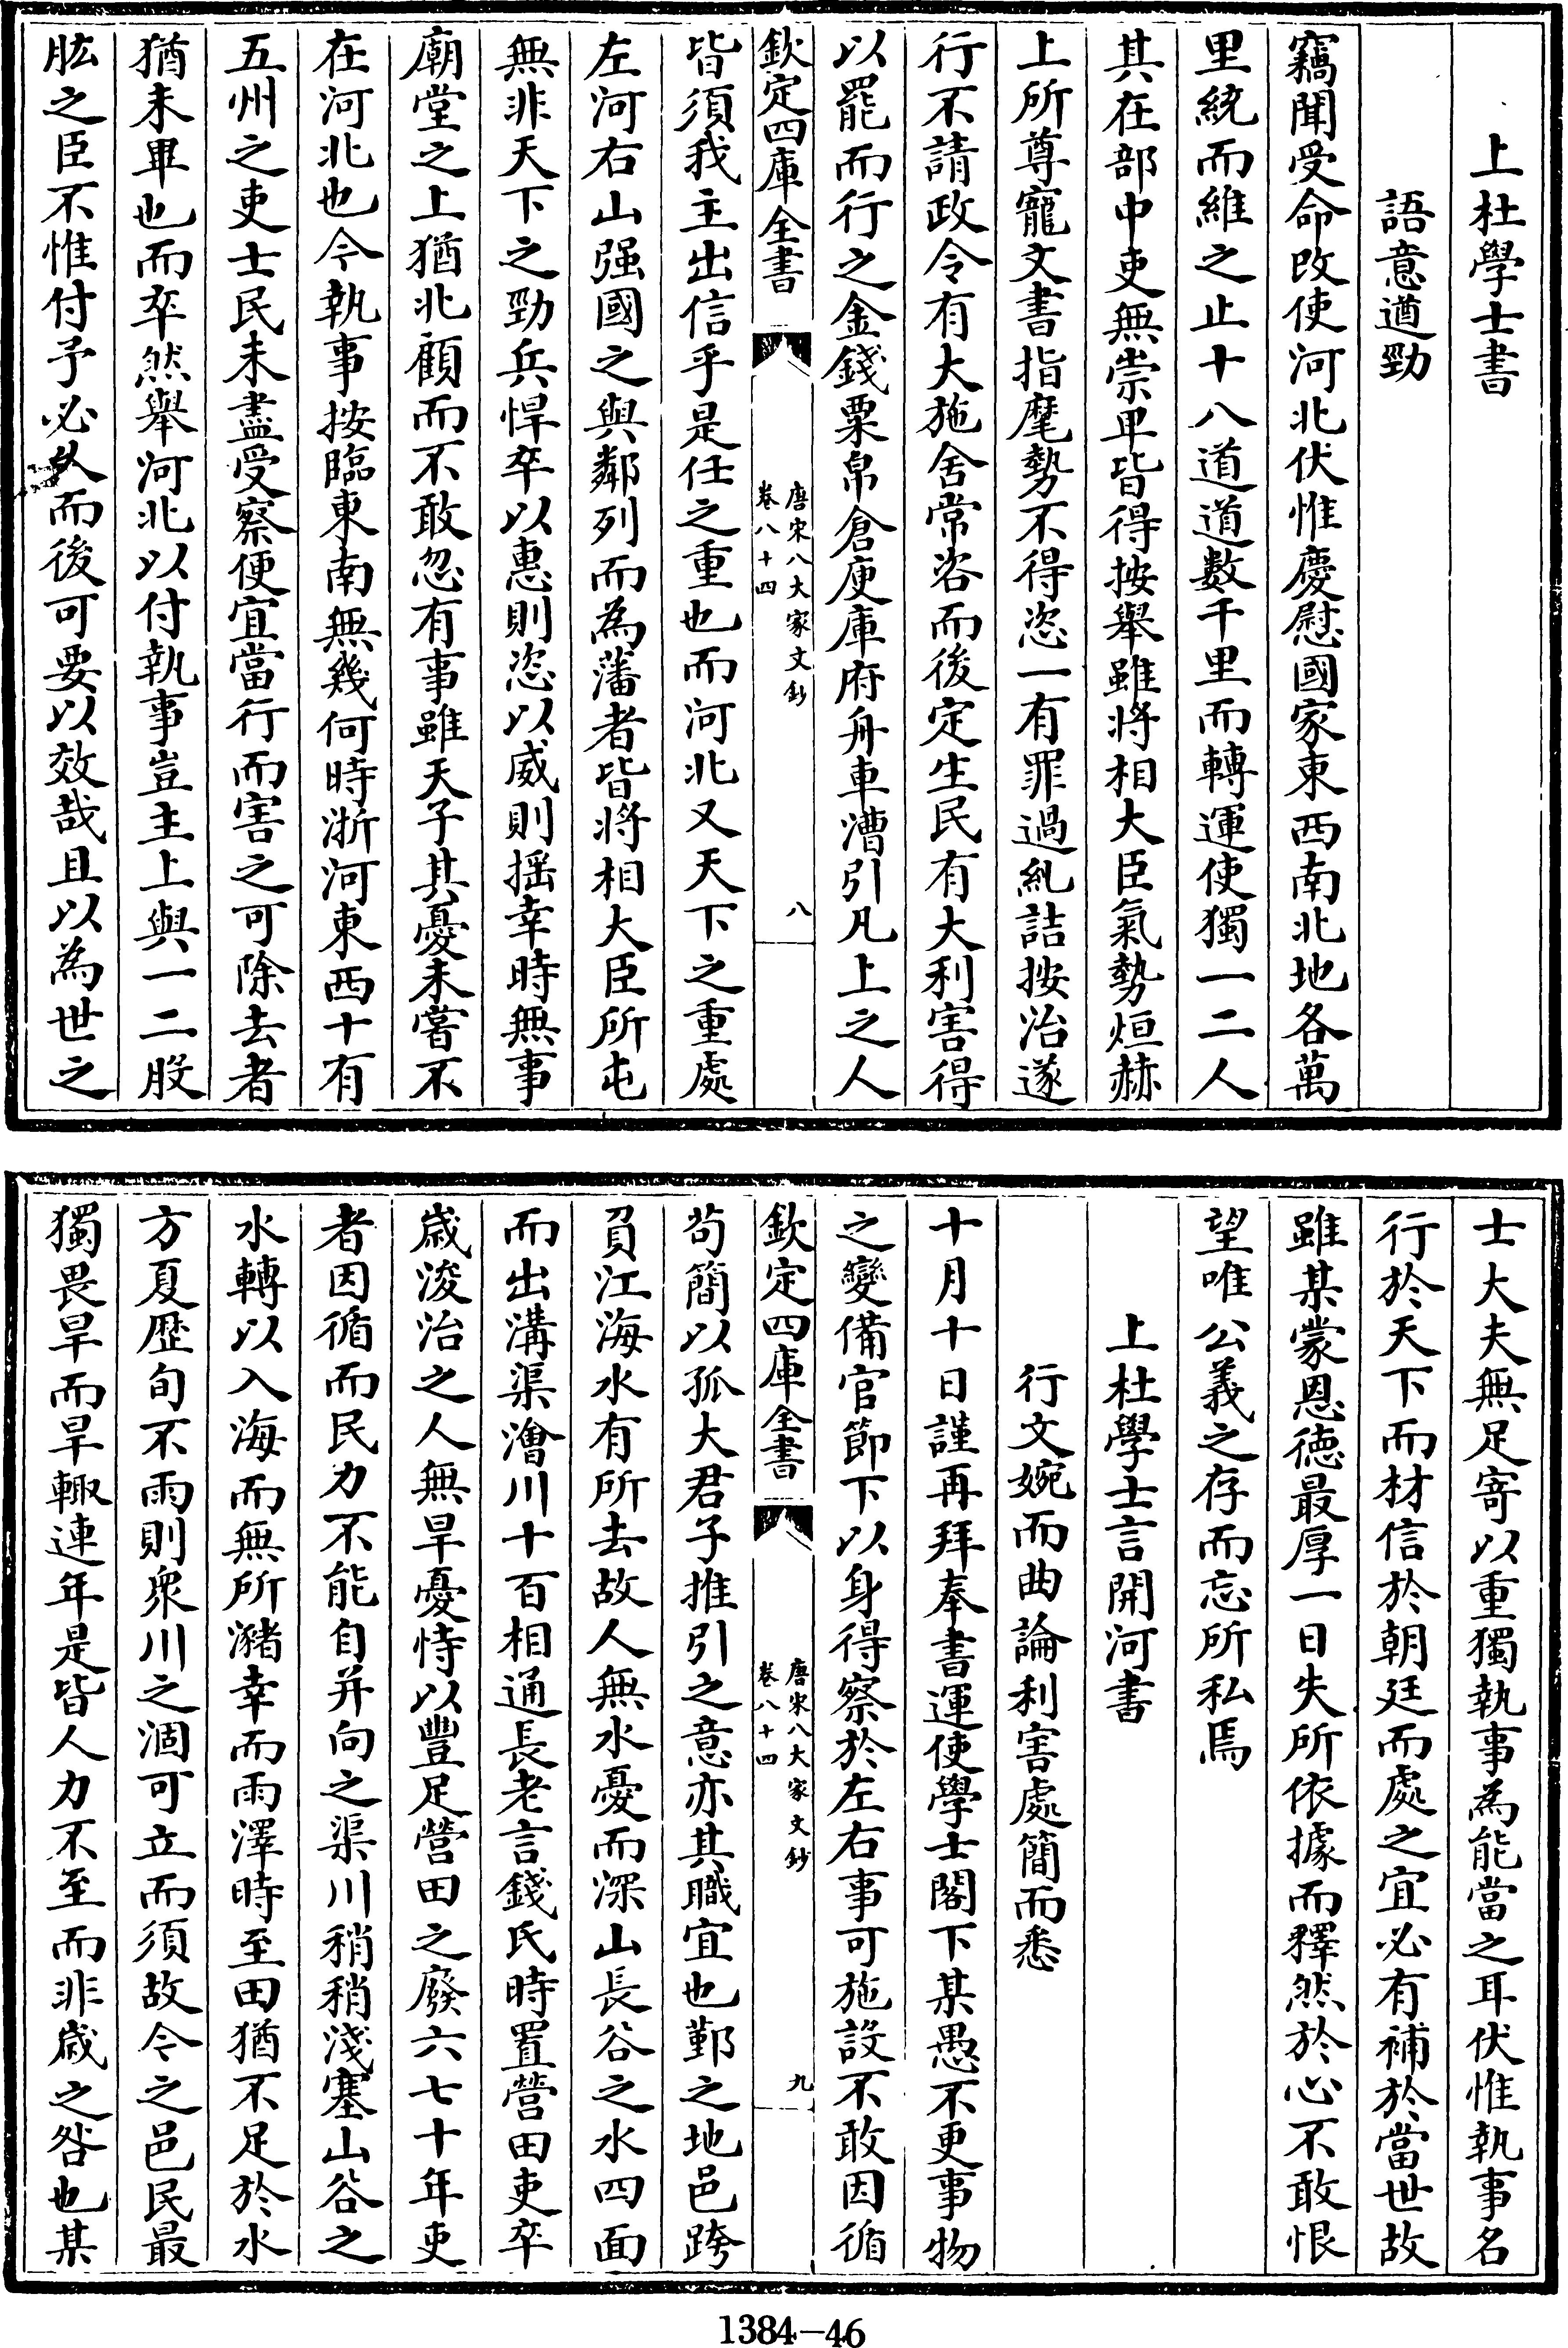 上杜學士書
語意遒勁
竊聞受命改使河北伏惟慶慰國家東西南北地各萬
里統而維之止十八道道數千里而轉運使獨一二人
其在部中吏無崇卑皆得按舉雖將相大臣氣勢烜赫
上所尊寵文書指麾勢不得恣一有罪過糺詰按治遂
行不請政令有大施舍常咨而後定生民有大利害得
以罷而行之金錢粟帛倉庾庫府舟車漕引凡上之人
欽定四庫全書
唐宋八大家文鈔
卷八十四
八
皆須我主出信乎是任之重也而河北又天下之重處
左河右山强國之與鄰列而為藩者皆將相大臣所屯
無非天下之勁兵悍卒以惠則恣以威則揺幸時無事
廟堂之上猶北顧而不敢忽有事雖天子其憂未嘗不
在河北也今執事按臨東南無幾何時浙河東西十有
五州之吏士民未盡受察便宜當行而害之可除去者
猶未畢也而卒然舉河北以付執事豈主上與一二股
肱之臣不惟付予必久而後可要以效哉且以為世之
士大夫無足寄以重獨執事為能當之耳伏惟執事名
行於天下而材信於朝廷而處之宜必有補於當世故
雖某蒙恩徳最厚一日失所依據而釋然於心不敢恨
望唯公義之存而忘所私焉
上杜學士言開河書
行文婉而曲論利害處簡而悉
十月十日謹再拜奉書運使學士閣下某愚不更事物
之變備官節下以身得察於左右事可施設不敢因循
欽定四庫全書
唐宋八大家文鈔
卷八十四
九
茍簡以孤大君子推引之意亦其職宜也鄞之地邑跨
負江海水有所去故人無水憂而深山長谷之水四面
而出溝渠澮川十百相通長老言錢氏時置營田吏卒
歲浚治之人無旱憂恃以豐足營田之廢六七十年吏
者因循而民力不能自并向之渠川稍稍淺塞山谷之
水轉以入海而無所瀦幸而雨澤時至田猶不足於水
方夏歴旬不雨則衆川之涸可立而須故今之邑民最
獨畏旱而旱輙連年是皆人力不至而非歲之咎也某
1384-46